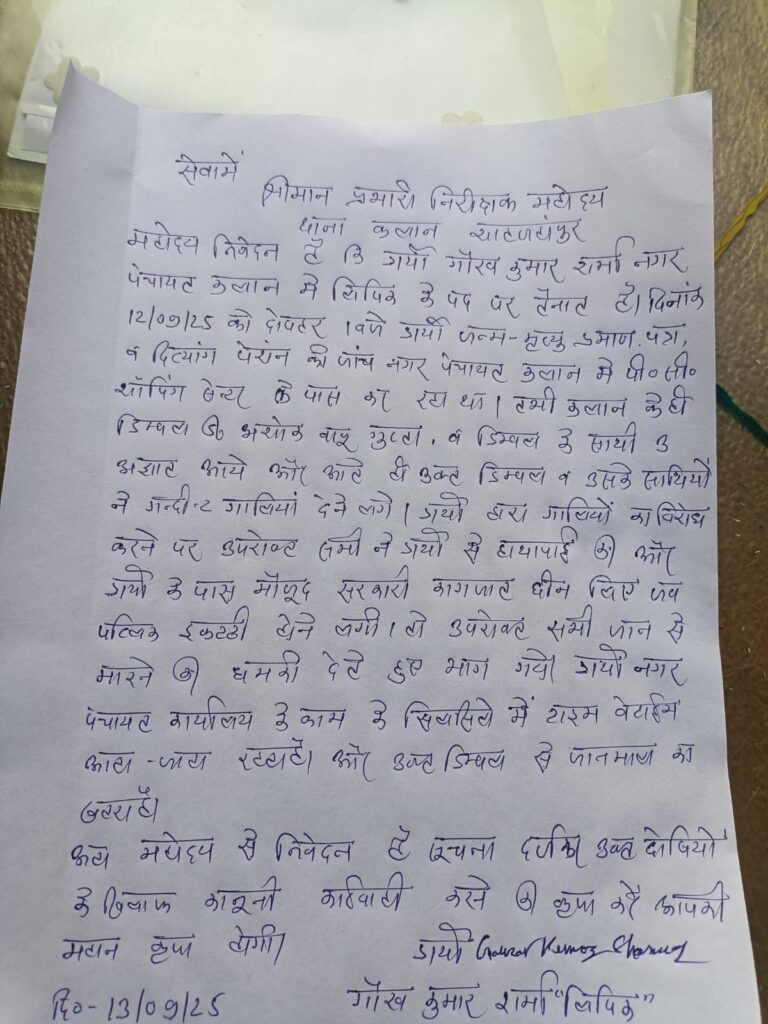 सेवामें
श्रीमान प्रभारी निरीक्षक महोदय
थाना कलान शाहजहांपुर
महोदय निवेदन है कि प्रार्थी गौरव कुमार शर्मा नगर
पंचायत कलान में लिपिक के पद पर तैनात है। दिनांक
12/09/25 को दोपहर 1 बजे प्रार्थी जन्म-मृत्यु प्रमाण पत्र,
व दिव्यांग पेंशन की जांच नगर पंचायत कलान में पी० सी०
शॉपिंग सेन्टर के पास कर रहा था। तभी कलान के ही
डिम्पल S/o अशोक बाबू गुप्ता, व डिम्पल के साथी 3
अज्ञात आये और आते ही उक्त डिम्पल व उसके साथियों
ने गन्दी-2 गालियां देने लगे। प्रार्थी द्वारा गालियों का विरोध
करने पर उपरोक्त सभी ने प्रार्थी से हाथापाई की और
प्रार्थी के पास मौजूद सरकारी कागजात छीन लिए जब
पब्लिक इकट्ठी होने लगी। तो उपरोक्त सभी जान से
मारने की धमकी देते हुए भाग गये। प्रार्थी नगर
पंचायत कार्यालय के काम के सिलसिले में टाइम बेटाईम
आता-जाता रहता है। और उक्त डिम्पल से जानमाल का
खतरा है।
अतः महोदय से निवेदन है सूचना दर्ज कर उक्त दोषियों
के खिलाफ कानूनी कार्यवाही करने की कृपा करें आपकी
महान कृपा होगी।
प्रार्थी Gaurav Kumar Sharma
दि०-13/09/25 गौरव कुमार शर्मा "लिपिक"